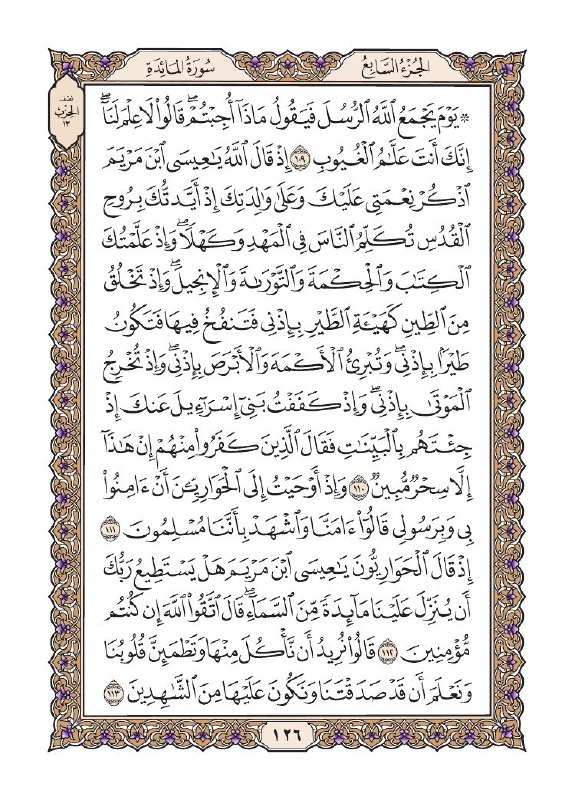 الجزء السابع
سورة المائدة
نصف
الحزب
١٣
۞ يَوْمَ يَجْمَعُ ٱللَّهُ ٱلرُّسُلَ فَيَقُولُ مَاذَآ أُجِبْتُمْۖ قَالُوا۟ لَا عِلْمَ لَنَآۖ
إِنَّكَ أَنتَ عَلَّـٰمُ ٱلْغُيُوبِ ١٠٩ إِذْ قَالَ ٱللَّهُ يَـٰعِيسَى ٱبْنَ مَرْيَمَ
ٱذْكُرْ نِعْمَتِى عَلَيْكَ وَعَلَىٰ وَٰلِدَتِكَ إِذْ أَيَّدتُّكَ بِرُوحِ
ٱلْقُدُسِ تُكَلِّمُ ٱلنَّاسَ فِى ٱلْمَهْدِ وَكَهْلًاۖ وَإِذْ عَلَّمْتُكَ
ٱلْكِتَـٰبَ وَٱلْحِكْمَةَ وَٱلتَّوْرَىٰةَ وَٱلْإِنجِيلَۖ وَإِذْ تَخْلُقُ
مِنَ ٱلطِّينِ كَهَيْـَٔةِ ٱلطَّيْرِ بِإِذْنِى فَتَنفُخُ فِيهَا فَتَكُونُ
طَيْرًۢا بِإِذْنِىۖ وَتُبْرِئُ ٱلْأَكْمَهَ وَٱلْأَبْرَصَ بِإِذْنِىۖ وَإِذْ تُخْرِجُ
ٱلْمَوْتَىٰ بِإِذْنِىۖ وَإِذْ كَفَفْتُ بَنِىٓ إِسْرَٰٓءِيلَ عَنكَ إِذْ
جِئْتَهُم بِٱلْبَيِّنَـٰتِ فَقَالَ ٱلَّذِينَ كَفَرُوا۟ مِنْهُمْ إِنْ هَـٰذَآ
إِلَّا سِحْرٌ مُّبِينٌ ١١٠ وَإِذْ أَوْحَيْتُ إِلَى ٱلْحَوَارِيِّـۧنَ أَنْ ءَامِنُوا۟
بِى وَبِرَسُولِى قَالُوٓا۟ ءَامَنَّا وَٱشْهَدْ بِأَنَّنَا مُسْلِمُونَ ١١١
إِذْ قَالَ ٱلْحَوَارِيُّونَ يَـٰعِيسَى ٱبْنَ مَرْيَمَ هَلْ يَسْتَطِيعُ رَبُّكَ
أَن يُنَزِّلَ عَلَيْنَا مَآئِدَةً مِّنَ ٱلسَّمَآءِۖ قَالَ ٱتَّقُوا۟ ٱللَّهَ إِن كُنتُم
مُّؤْمِنِينَ ١١٢ قَالُوا۟ نُرِيدُ أَن نَّأْكُلَ مِنْهَا وَتَطْمَئِنَّ قُلُوبُنَا
وَنَعْلَمَ أَن قَدْ صَدَقْتَنَا وَنَكُونَ عَلَيْهَا مِنَ ٱلشَّـٰهِدِينَ ١١٣
١٢٦